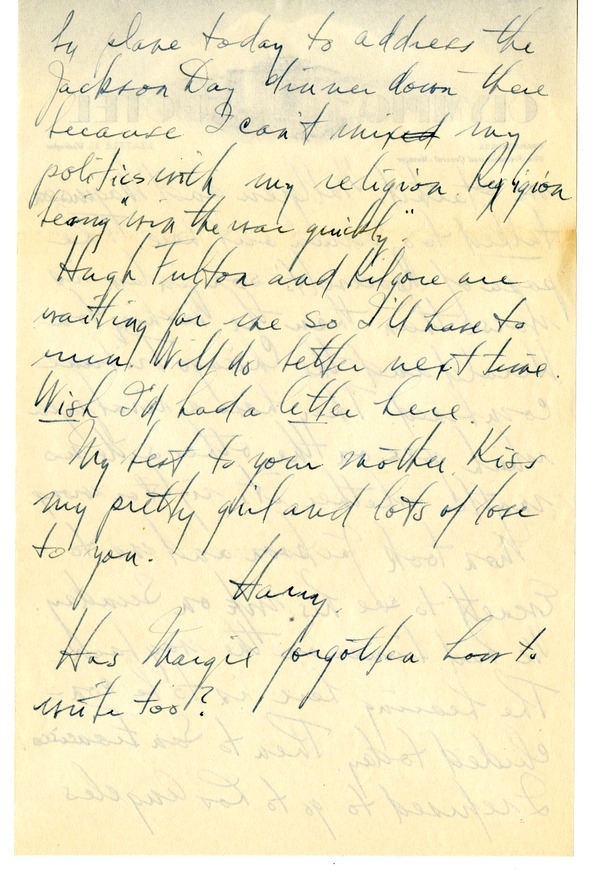 by plane today to address the
Jackson Day dinner down there
because I can't mixed my
politics with my religion. Religion
being "win the war quickly".
Hugh Fulton and Kilgore are
waiting for me so I'll have to
run. Will do better next time.
Wish I'd had a letter here.
My best to your mother. Kiss
my pretty girl and lots of love
to you.
Harry.
Has Margie forgotten how to
write too?